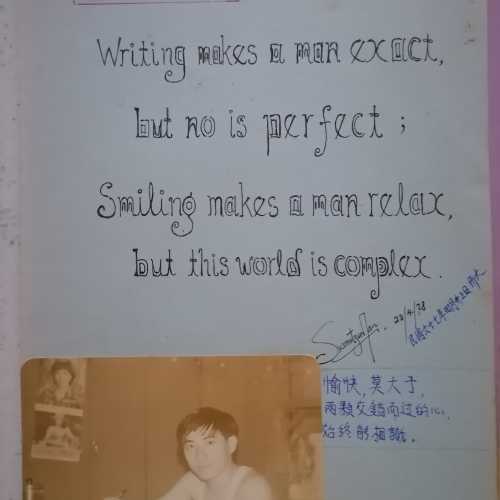 Writing makes a man exact,
but no is perfect ;
Smiling makes a man relax,
but this world is complex .
22/4/78
愉快,莫大于,
兩顆交錯而过的心,
始終能相融。